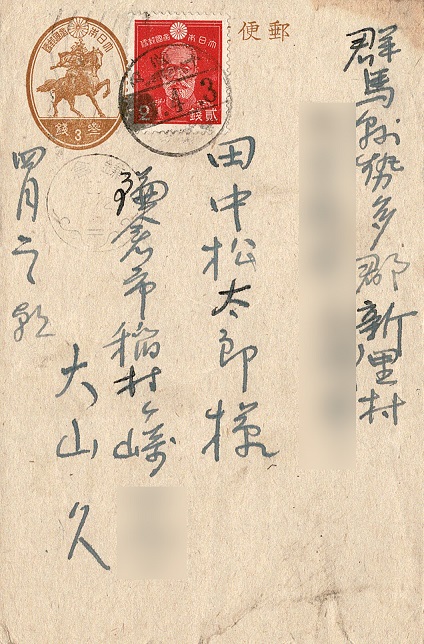 郵便
大日本帝國郵便
參錢
3
大日本帝國郵便
2
貳錢
群馬縣勢多郡新里村
田中松太郎様
鎌倉市稲村ヶ崎
大山久
四月二